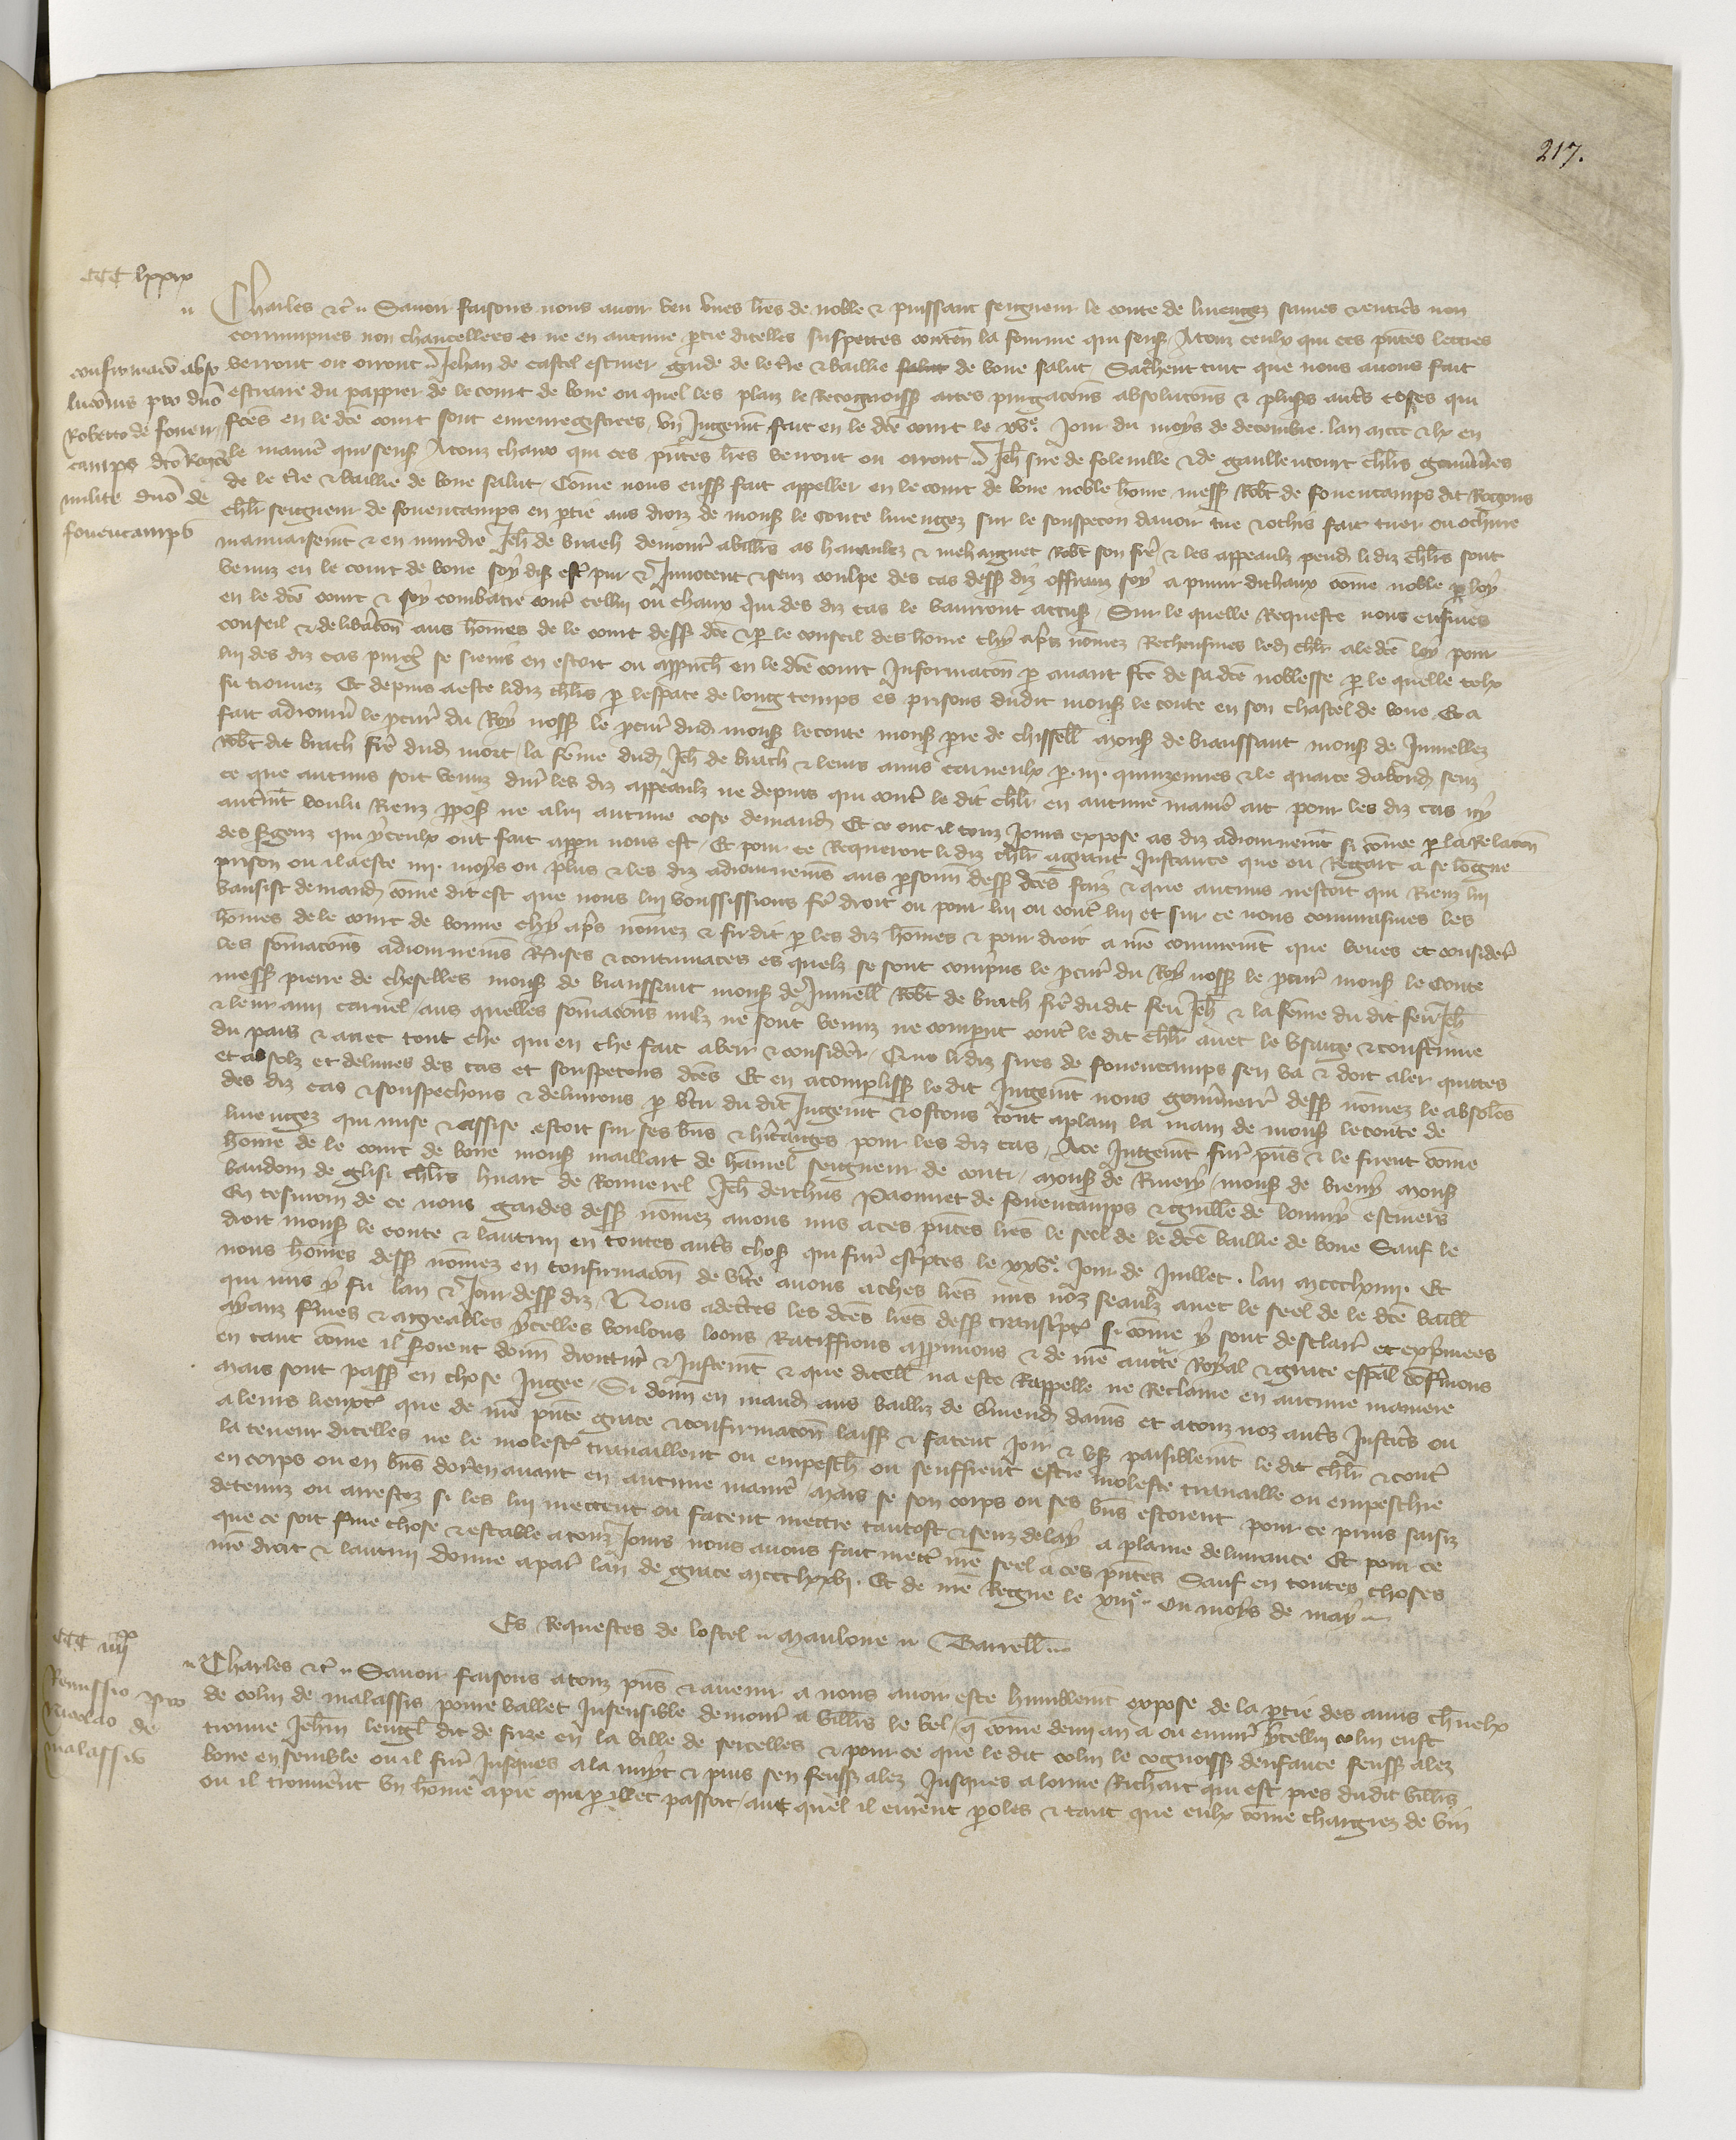 217.
CCC lxxix
Charles etc. Savoir faisons nous avoir veu unes lres de noble et puissant seigneur le conte de liuengez saines et entieres non
corrumpues non chancellees et ne en aucune ptie dicelles suspettes conten la fourme qui sensuit Atouz ceulx qui ces pntes lettres
verront ou orront Jehan de castel escuier garde de le tre et baillie de bove salut Sachent tuit que nous avons fait
confirmacio abso
lucionis pro dno
Roberto de foven
camps dco Rogon
milite dno de
fovencamps
estraire du pappier de le court de bove ou quel les plaiz le Recognoiss actes purgacons absolucons et plus autres coses qui
fces en le dce court sont enrenregistrees, un Jugemt fait en le dce court le xve Jour du moys de decembre lan mccc et lx en
le maniere qui sens Atouz chaux qui ces pntes lres verront ou orront Jeh sire de folevile et de gaullencourt chlrs gouverneres
de le tre et baillie de bove salut, Come nous euss fait appeller en le court de bove noble home mess Robt de fovencamps dit Rogons
chlr seigneur de fovencamps en ptie aus droiz de mons le conte liuengez sur le souspecon davoir tue et ochis fait tuer ou ochirre
mauvaisemt et en murdre Jeh de brach demour abillrs as haraultz et mehaignet Robt son frere et les appeaulx pend li diz chlrs sont
venuz en le court de bove soy dis estre pur et Jnnocent et senz coulpe des cas dess diz offranz soy a purgier dichaux come noble par loy
en le dce court et soy combatre contre cellui ou chaux qui des diz cas le vaurront accus, Sur le quelle Requeste nous eusmes
conseil et deliberacon aus homes de le court dess dce et p le conseil des home chy aprs nomez Recheusmes led chlr a le dce loy pour
lui des diz cas purgier se sieuis en estoit ou approuch en le dce court Jnformacon p avant fce de sa dce noblesse p le quelle telx
fu trouvez Et depuis a este li diz chlrs p lespace de long temps es prisons dudit mons le conte en son chastel de bove, Et a
fait adiourner le pcur du Roy noss le pcur dud mons le conte mons pre de chissell mons de braussant mons de Jumellez
Robt dit brach frere dud mort, la feme dud Jeh de brach et leurs amis carneulx p iii quinzennes et le quarte dabond senz
ce que aucuns soit venuz durant les diz appeaulx ne depuis qui contre le dit chlr en aucune maniere ait pour les diz cas ny
autremt voulu Rienz ppos ne a lui aucune cose demand Et ce ont il touz Jours expose as diz adiournemt si come p la Relacion
des sergenz qui yceulx ont fait apparu nous est, Et pour ce Requeroit li diz chlr a grant Jnstance que eu Regart a se longue
prison ou il a este iii moys ou plus et les diz adiournemens aus personn dess dces faiz et que aucuns nestoit qui Rienz lui
vausist demand come dit est que nous lui voussissions fere droit ou pour lui ou contre lui et sur ce nous conmasmes les
homes de le court de bove chy aprs nomez et fu dit p les diz homes et pour droit a nre conmemt que veues et consider
les somacons adiournemens Ruses et contumaces es quelz se sont comparus le pcur du Roy noss le pcur mons le Conte
mess pierre de cheselles mons de braussant mons de Jumell Robt de brach frere du dit feu Jeh et la feme du dit feu Jeh
et leur ami carnel, aus quelles somacons nulz ne sont venuz ne comparut contre le dit chlr avec le usaige et coustume
du pais et avec tout che qui en che fait abeir et consider, Que li diz sires de fovencamps sen va et doit aler quittes
et absolz et delivres des cas et souspecons dces Et en acompliss le dit Jugemt nous gouverneur dess nomez le absolons
des diz cas et souspechons et delivrons p vertu du dit Jugemt et ostons tout a plain la main de mons le conte de
liuengez qui mise et assise estoit sur ses bns et heritages pour les diz cas, Ace Jugemt furent pns et le firent come
home de le court de bove mons maillart de hamel seigneur de conti, mons de Rivery, mons de vreny mons
baudoin de glisi chlrs huart de Rouverel Jeh derchus Paonnet de fovencamps et guille de loum̃y escuiers
En tesmoin de ce nous gardes dess nomez avons mis a ces pntes lres le seel de le dce baillie de bove Sauf le
droit mons le conte et lautrui en toutes autres chos qui furent escriptes le xxve Jour de Juillet lan mccclxiiii Et
nous homes dess nomez en confirmacon de verite avons a ches lres mis noz seaulz avec le seel de le dce baill
qui mis y fu lan et Jour dess diz Nous adecertes les dces lres dess transcriptes si come y sont desclair et exprimees
ayans fmes et agreables ycelles voulons loons Ratiffions approuvons et de nre aucte Royal et grace espal confermons
en tant come il seroient donn droiturieres et Justemt et que dicell na este Rappelle ne Reclame en aucune maniere
mais sont pass en chose Jugee, Si donn en mand aus bailliz de vermend damiens et a touz noz autres Justiciers ou
a leurs lieuxten que de nre pnte grace et confirmacon laiss et facent Joir et us paisiblemt le dit chlr et contre
la teneur dicelles ne le molestent travaillent ou empesch ou seuffrent estre moleste travaille ou empeschie
en corps ou en bns dorenavant en aucune maniere mais se son corps ou ses bns estoient pour ce prins saisiz
detenuz ou arrestez si les lui mectent ou facent mectre tantost et senz delay a plaine delivrance Et pour ce
que ce soit ferme chose et estable a touz Jours nous avons fait mettre nre seel a ces pntes Sauf en toutes choses
nre droit et lautrui donne a paris lan de grace mccclxxvi Et de nre Regne le xiiie ou moys de may
Es Requestes de lostel Maulone Barrell
CCC iiiixx
Remissio pro
Nicolao de
malassis
Charles etc. Savoir faisons a touz pns et avenir a nous avoir este humblemt expose de la ptie des amis charnelx
de colin de malassis povre vallet Jnsensible demourant a villrs le bel, q come demi an a ou environ ycellui colin eust
trouve Jehin lenglet dit de fuze en la ville de sercelles et pour ce que le dit colin le cognoiss denfance feuss alez
boire ensemble ou il furent Jusques a la nuyt et puis sen feuss alez Jusques a lorme Richart qui est pres dudit villrs
ou il trouverent un home a pie qui p illec passoit, aut quel il eurent paroles et tant que eulx come chargiez de vin